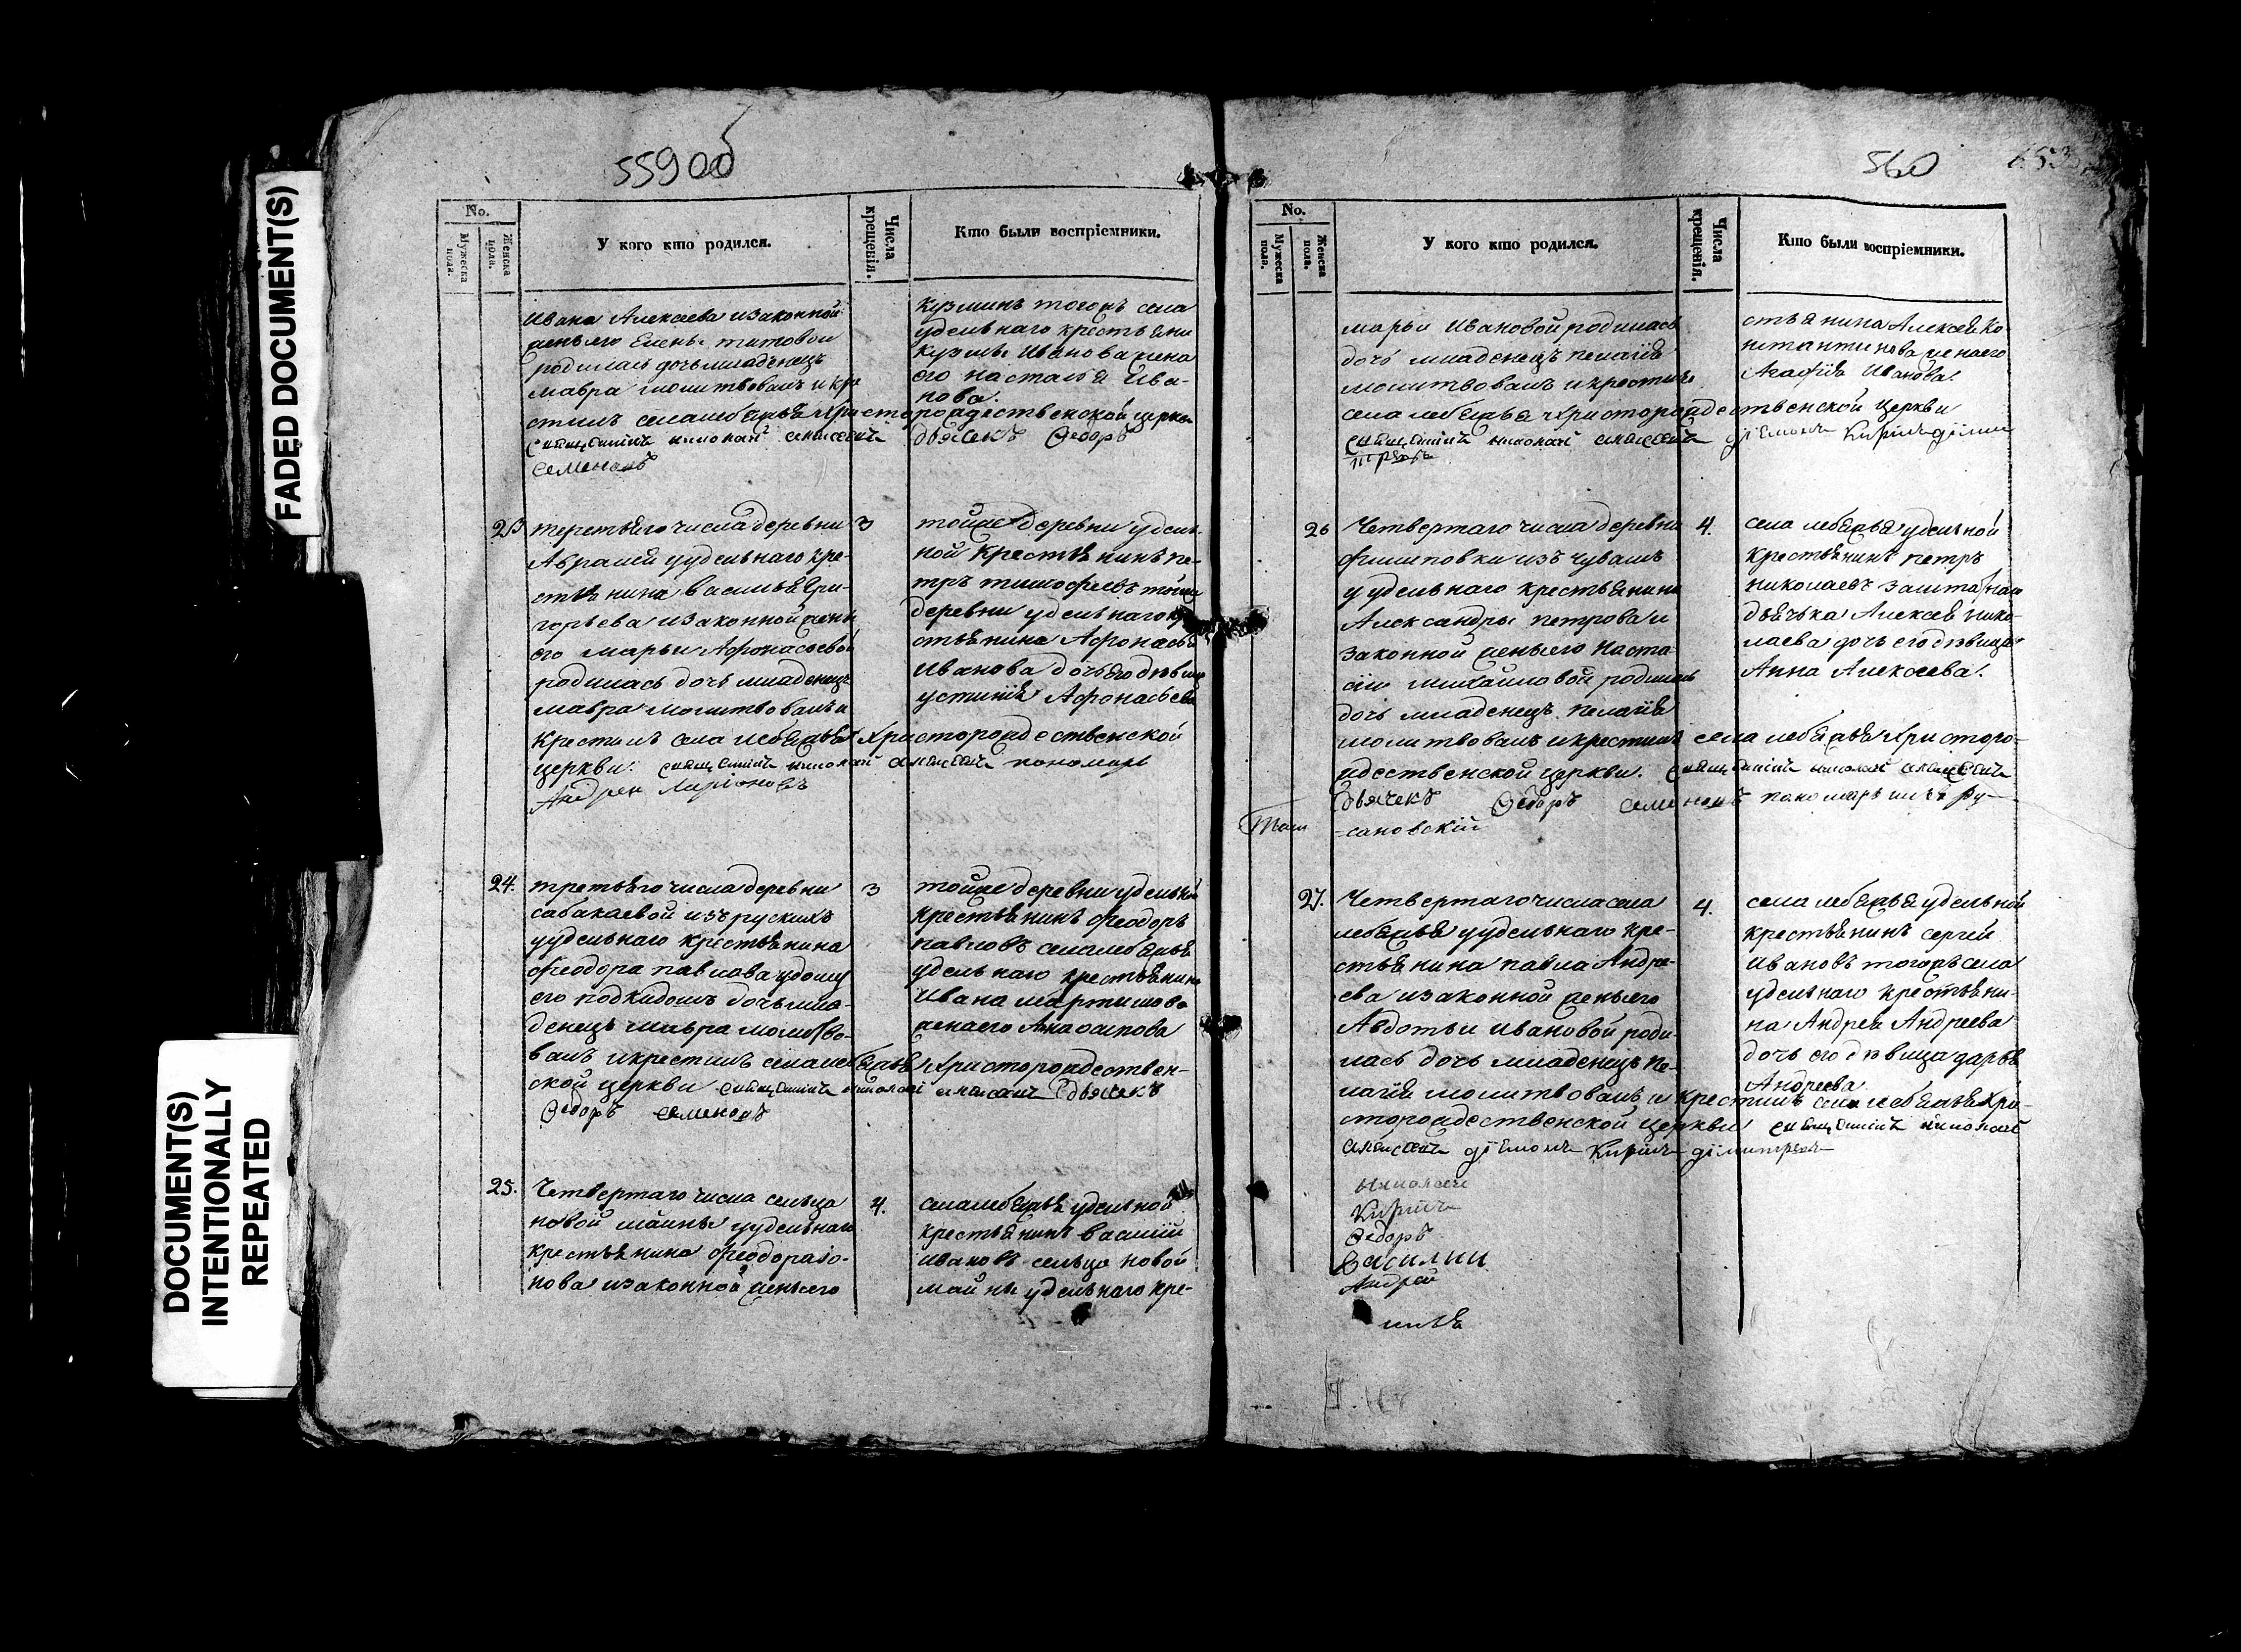 FADED DOCUMENT(S)
DOCUMENT(S)
INTENTIONALLY
REPEATED
559об
No.
Мужеска пола.
Женска пола.
У кого кто родился.
Числа крещенія.
Кто были воспріемники.
Ивана Алексеева изаконной
жены его Елены титовой
родилась дочь младенецъ
мавра молитвовалъ и кре
стилъ села лебяжья христорождественской церкви
священникъ николай алексеевъ дьячекъ Ѳедоръ
семеновъ
кузминъ тогожъ села
удельнаго крестьяни
кузмы Иванова жена
его настасья Ива-
нова.
23
третьяго числа деревни
Абрамей уудельнаго кре-
стьянина василья Гри-
горьева изаконной жены
его марьи Афонасьевой
родилась дочь младенецъ
мавра молитвовалъ и
крестилъ села лебяжья Христорождественской
церкви. священникъ николай алексеевъ пономарь
Андрей Ларіоновъ
3
тойже деревни удель-
ной крестьянинъ пе-
тръ тимофеевъ тойже
деревни удельнаго кре
стьянина Афонасья
Иванова дочь его девица
устинія Афонасьева
24.
третьяго числа деревни
сабакаевой изъ рускихъ
уудельнаго крестьянина
феодора павлова удому
его подкидошъ дочь мла-
денецъ мавра молитво-
валъ и крестилъ села лебяжья Христорождествен-
ской церкви священникъ николай алексеевъ дьячекъ
Ѳедоръ семеновъ
3
тойже деревни удельной
крестьянинъ феодоръ
павловъ села лебяжья
удельнаго крестьянина
Ивана мартинова
жена его Анна осипова
25.
Четвертаго числа сельца
новой маины уудельнаго
крестьянина феодора іо-
нова изаконной жены его
4.
села лебяжья удельной
крестьянинъ василій
ивановъ сельца новой
майны удельнаго кре-
560
No.
Мужеска пола.
Женска пола.
У кого кто родился.
Числа крещенія.
Кто были воспріемники.
марьи Ивановой родилась
дочь младенецъ пелагія
молитвовалъ и крестилъ
села лебяжья христорождественской церкви
священникъ николай алексеевъ діаконъ Кирилъ діми
тріевъ
стьянина Алексея Ко-
нстантинова жена его
Агафия Иванова.
26
Четвертаго числа деревни
филиповки изъ чувашъ
у удельнаго крестьянина
Александры петрова и
законной жены его Наста-
сіи михайловой родилась
дочь младенецъ пелагія
молитвовалъ и крестилъ села лебяжья Христоро-
ждественской церкви. священникъ николай алексеевъ
дьячекъ Ѳедоръ семеновъ пономарь илья Ру-
сановскій
4.
села лебяжья удельной
крестьянинъ петръ
николаевъ заштатнаго
дьячька Алексея нико-
лаева дочь его девица
Анна Алексеева.
27.
Четвертаго числа села
лебяжья уудельнаго кре-
стьянина павла Андре-
ева изаконной жены его
Авдотьи ивановой роди-
лась дочь младенецъ пе-
лагія молитвовалъ и крестилъ села лебяжья Хри-
сторождественской церкви священникъ николай
алексеевъ діаконъ Кирилъ дімитріевъ
4.
села лебяжья удельной
крестьянинъ сергей
ивановъ тогожъ села
удельнаго крестьяни-
на Андрея Андреева
дочь его девица дарья
Андреева
николай
Кирилъ
Ѳедоръ
Василии
Андрей
илья